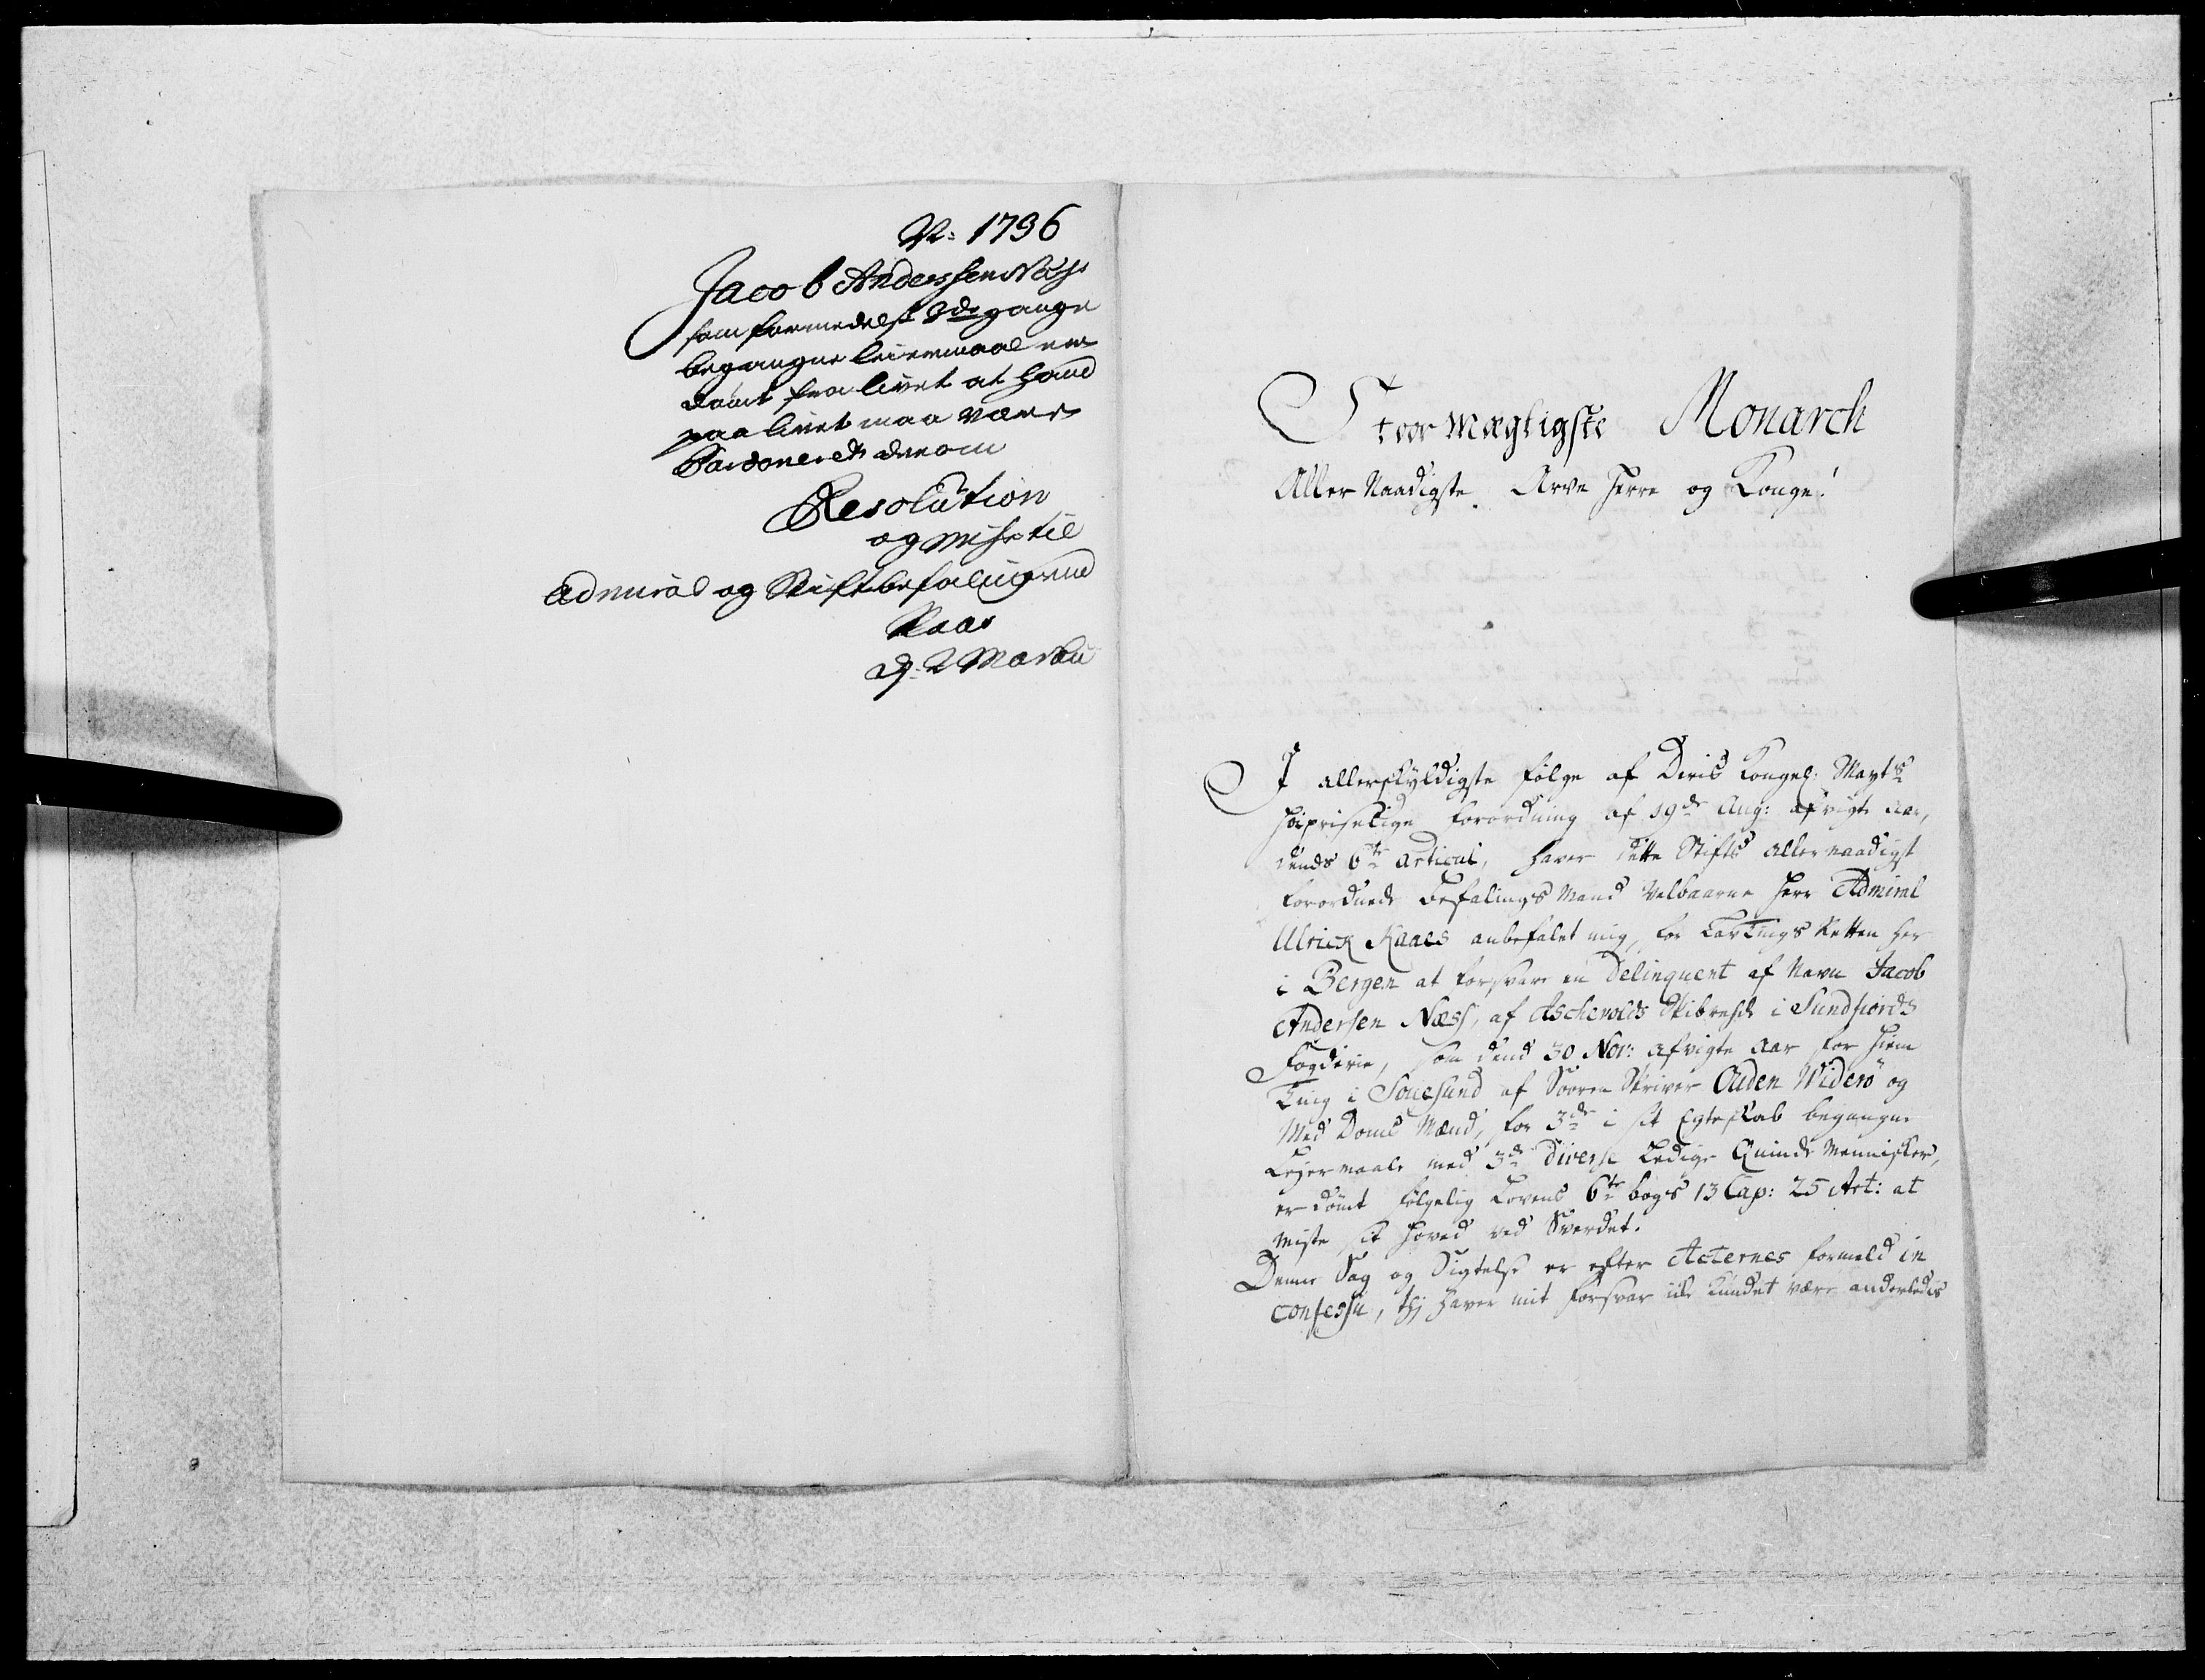 1736
Jacob Anderssen Næss
som formedelst 3de gange
begangne leiermaal er
dømt fra livet at hand
paa livet maa være
Pardoneret derom
Resolution
og Miss: til
Admiral og Stiftbefalingsmd
Kaas
d: 2 Martii
Stoormægtigste Monarch
Aller Naadigste Arve Herre og Konge!
I allerskyldigste følge af Deris Kongel: Mayts
høiprisselige forordning af 19de Aug: afvigte aar,
dends 6te Articul, haver dette Stifts allernaadigst
forordnede Befalings Mand Velbaarne Herr Admiral
Ulrick Kaaes anbefalet mig, for LavTings Retten her
i Bergen at forsvare en Delinquent af Navn Jacob
Andersen Næss, af Aschevolds Skibrede i Sundfiords
Fogderie, som dend 30 Nov: afvigte aar for Hiem
Ting i Souesund af Sooren Skriver Ouden Widerö og
Med Doms Mænd, for 3de i sit Egteskab begangne
Lejermaale med 3de diverse Ledige Quinde Mennisker,
er dømt følgelig Lovens 6te bogs 13 Cap: 25 Art: at
miste sit Hoved ved Sverdet.
Denne Sag og Sigtelse er efter Acternes formeld in
confesso, thj haver mit forsvar iche kundet være anderledis